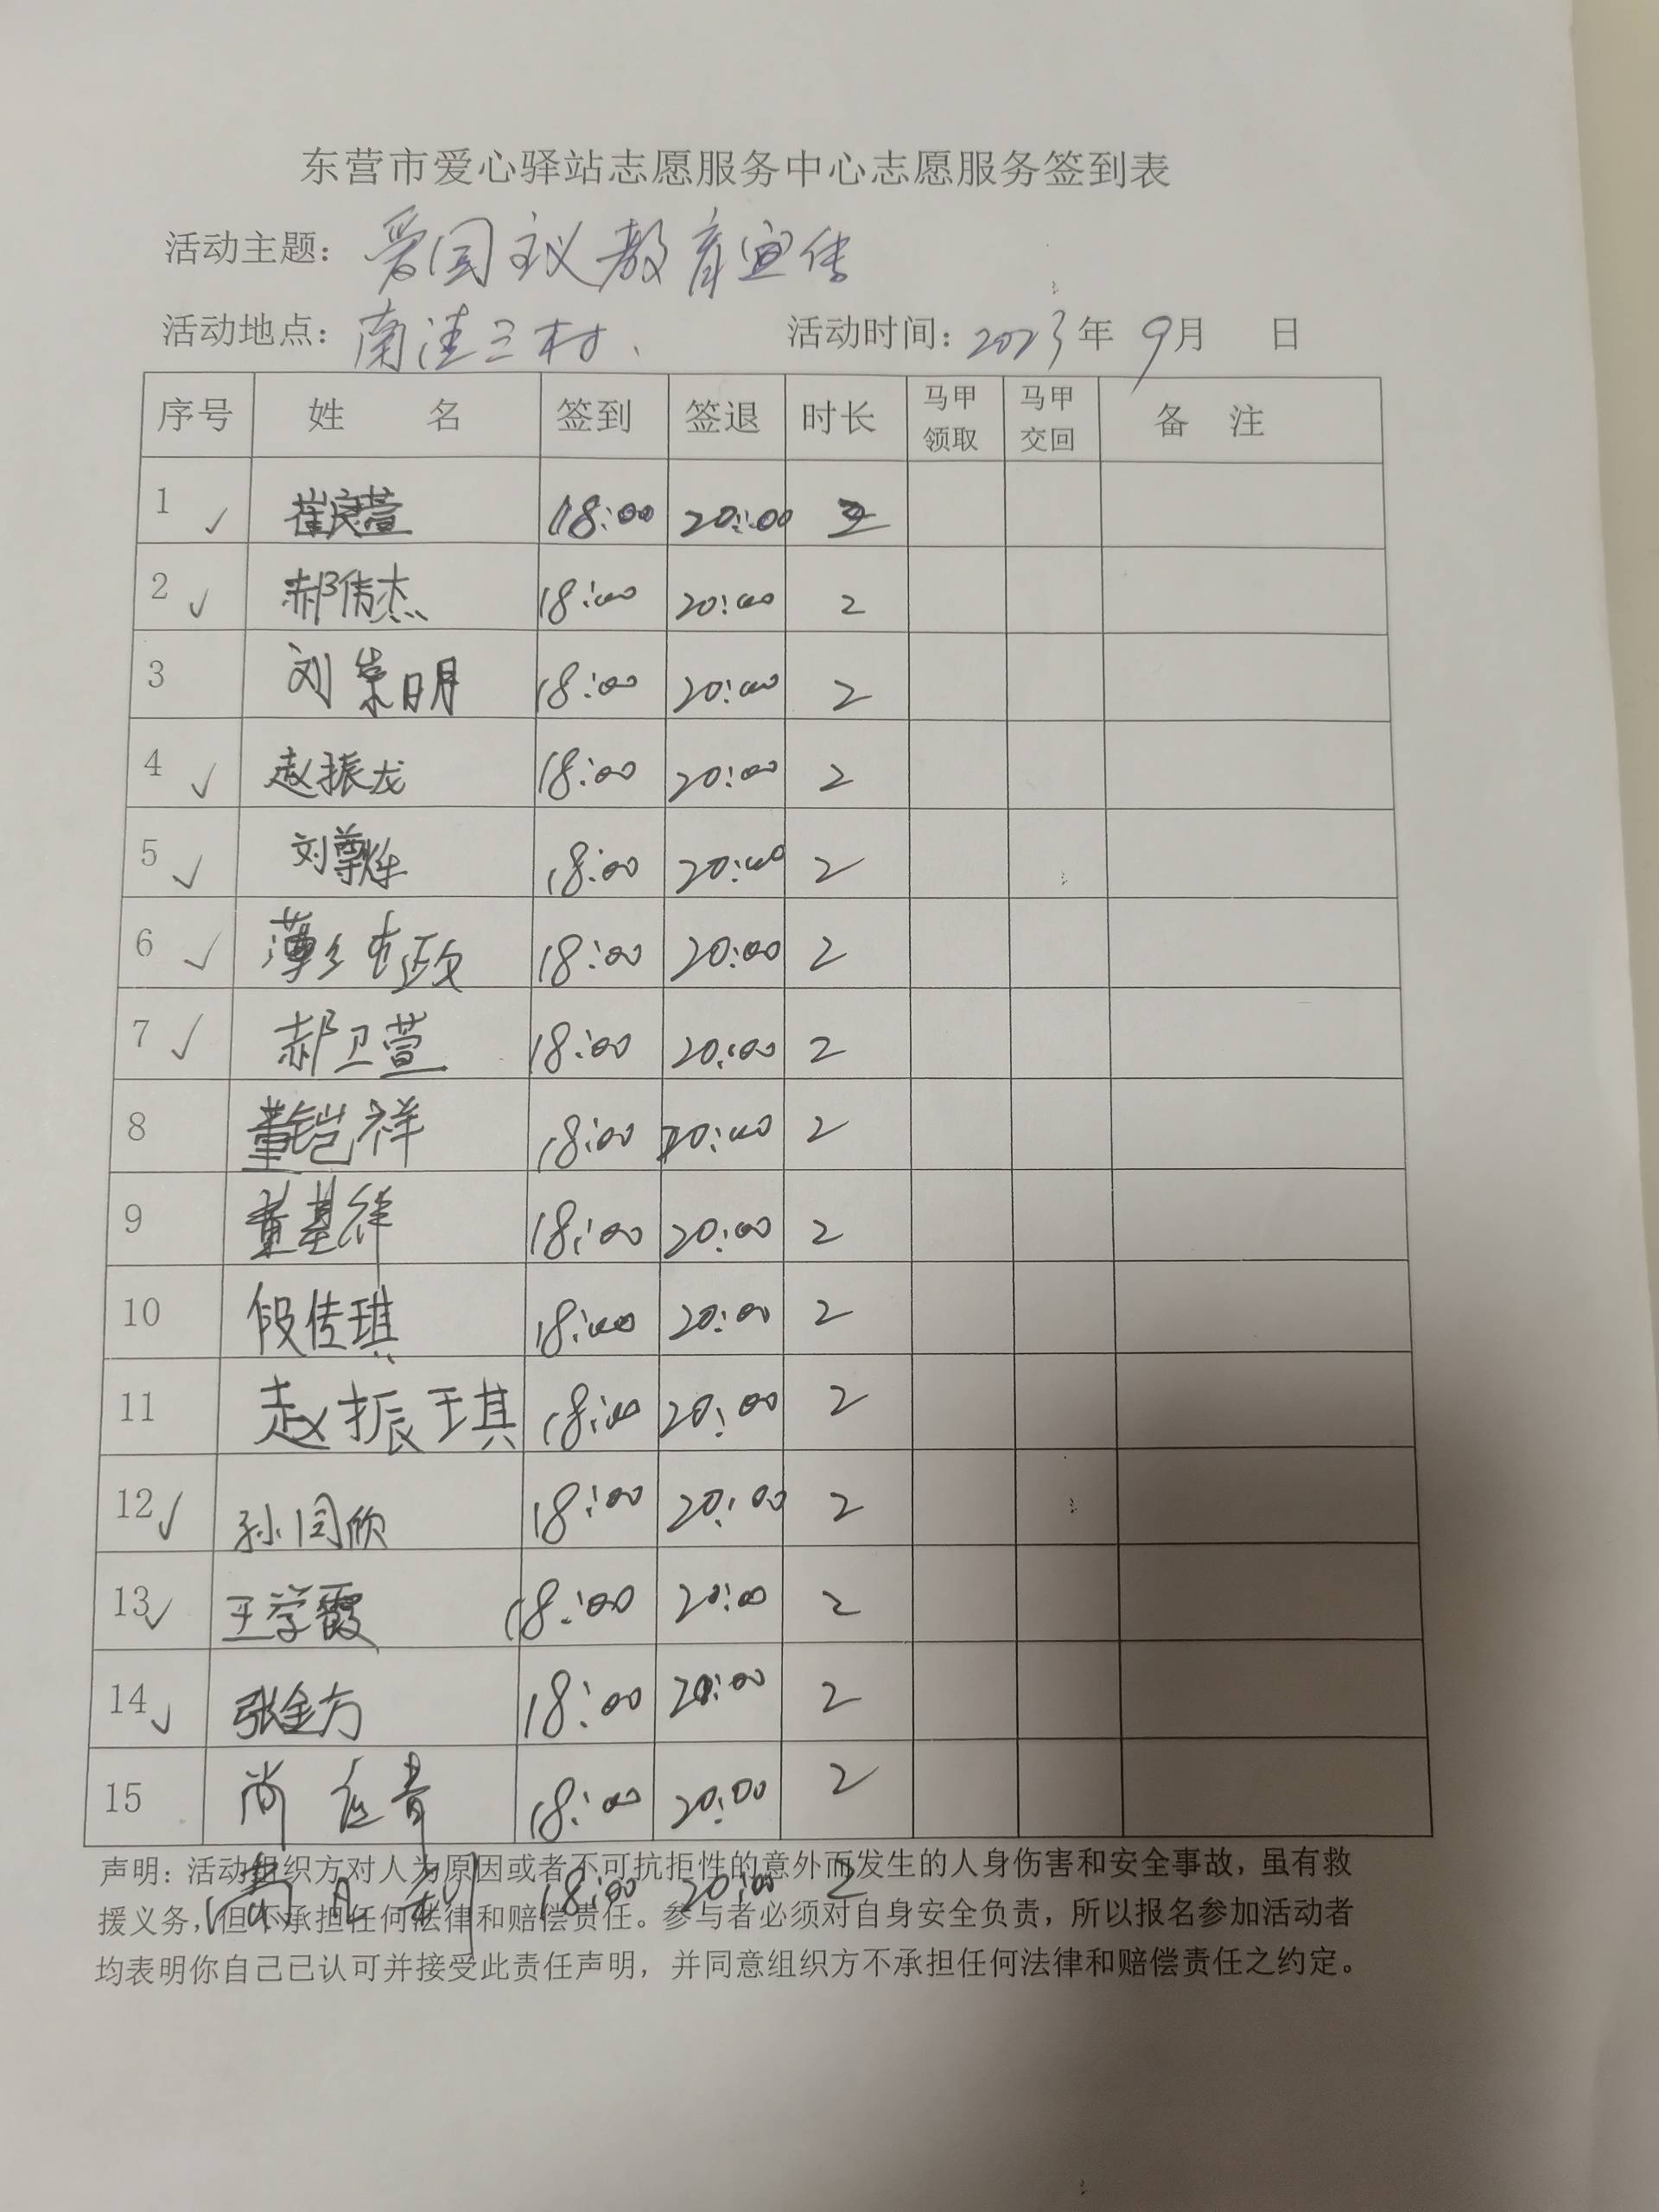 东营市爱心驿站志愿服务中心志愿服务签到表
活动主题：爱国主义教育宣传
活动地点：南洼三村、 活动时间：2023年 9月 日
序号 姓 名 签到 签退 时长 马甲领取 马甲交回 备 注
1 ✓ 崔良萱 18:00 20:00 2
2 ✓ 郝伟杰 18:00 20:00 2
3 刘崇明 18:00 20:00 2
4 ✓ 赵振龙 18:00 20:00 2
5 ✓ 刘尊烨 18:00 20:00 2
6 ✓ 薄 政 18:00 20:00 2
7 ✓ 郝卫萱 18:00 20:00 2
8 董铠祥 18:00 20:00 2
9 董基祥 18:00 20:00 2
10 段传琪 18:00 20:00 2
11 赵振琪 18:00 20:00 2
12 ✓ 孙闫欣 18:00 20:00 2
13 ✓ 王学霞 18:00 20:00 2
14 ✓ 张金方 18:00 20:00 2
15 尚 青 18:00 20:00 2
18:00 20:00 2
声明：活动组织方对人为原因或者不可抗拒性的意外而发生的人身伤害和安全事故，虽有救
援义务，但不承担任何法律和赔偿责任。参与者必须对自身安全负责，所以报名参加活动者
均表明你自己已认可并接受此责任声明，并同意组织方不承担任何法律和赔偿责任之约定。